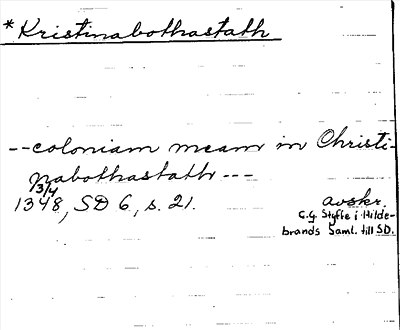 *Kristinabothastath
--coloniam meam in Christi-
nabothastath ---
3/4
1348, SD 6, s. 21.
avskr.
C.G. Styffe i Hilde-
brands Saml. till SD.